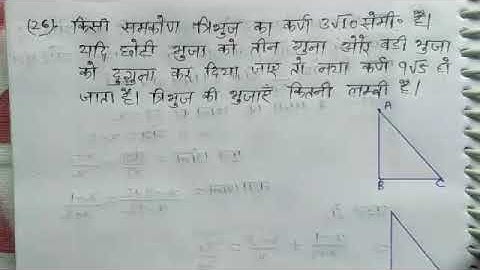 (26)- किसी समकोण त्रिभुज का कर्ण 3√10 सेमी० है।
यदि छोटी भुजा को तीन गुना और बडी भुजा
को दुगुना कर दिया जाए तो नया कर्ण 9√5 हो
जाता है। त्रिभुज की भुजाएँ कितनी लम्बी है।
A
B
C